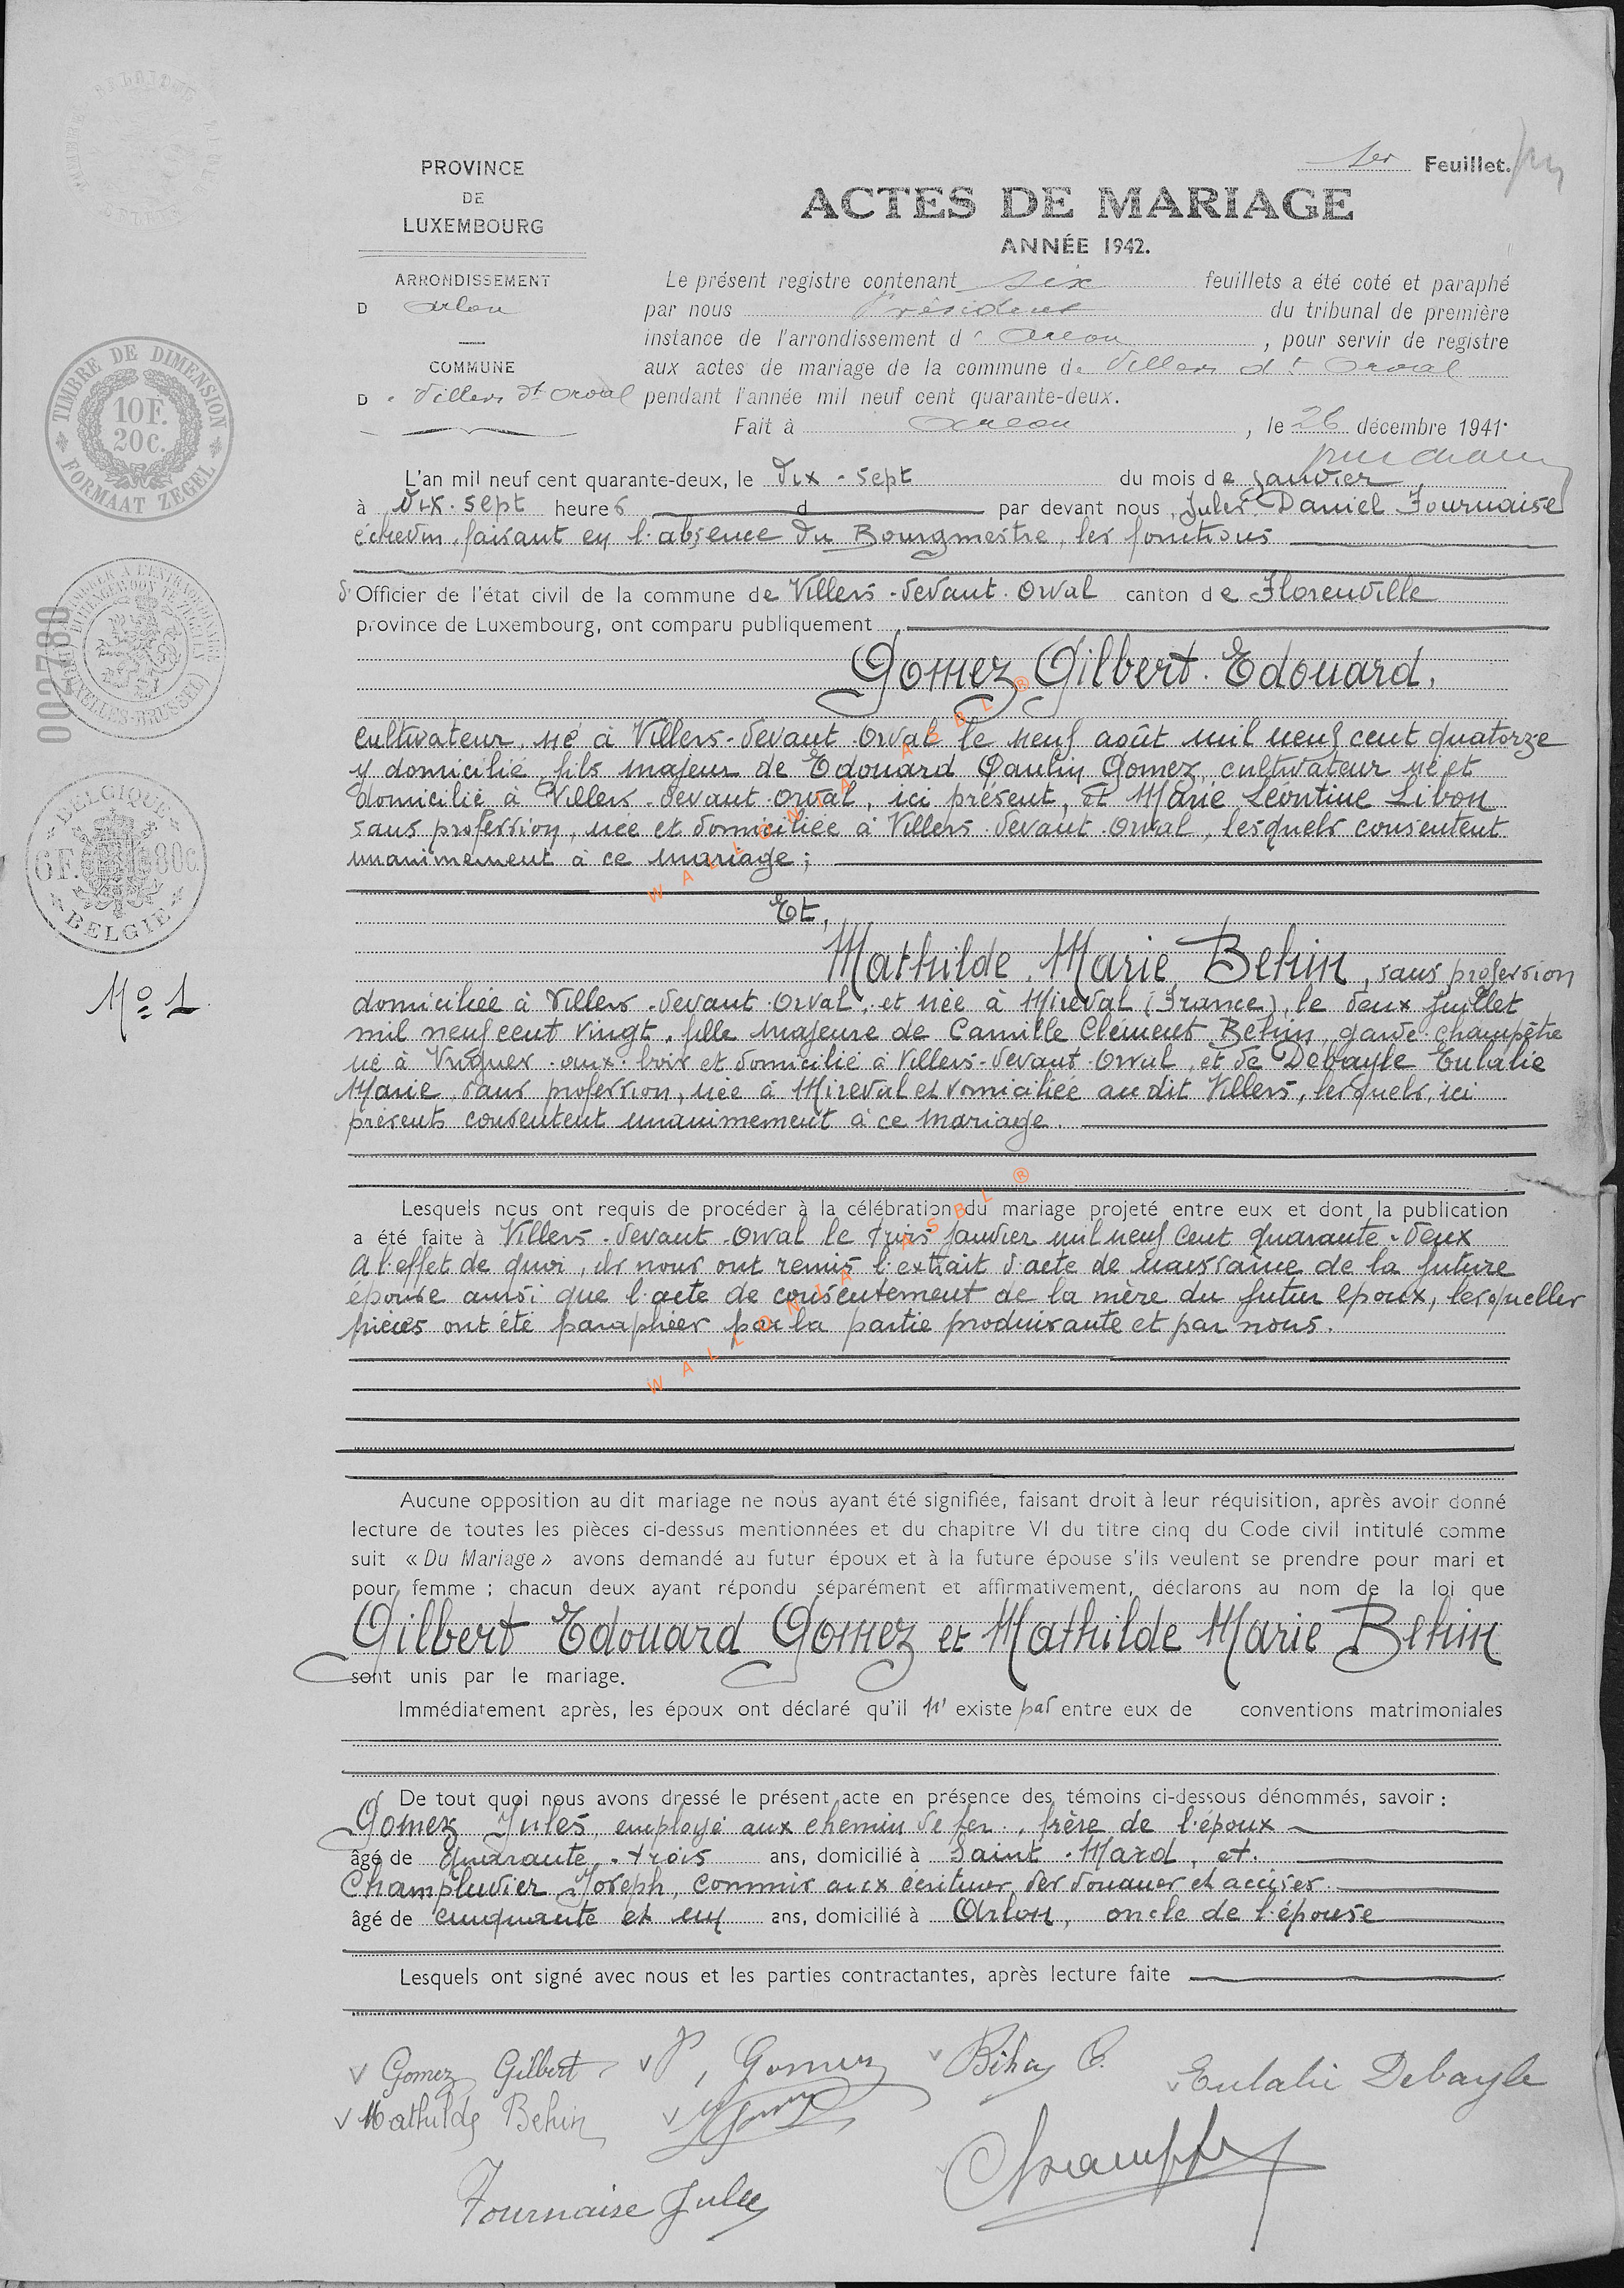 1er Feuillet.
PROVINCE
DE
LUXEMBOURG
ACTES DE MARIAGE
ANNÉE 1942.
ARRONDISSEMENT
D Arlon
COMMUNE
D Villers dt Orval
Le présent registre contenant six feuillets a été coté et paraphé
par nous Président du tribunal de première
instance de l'arrondissement d' Arlon, pour servir de registre
aux actes de mariage de la commune de Villers dt Orval
pendant l'année mil neuf cent quarante-deux.
Fait à Arlon, le 26 décembre 1941.
TIMBRE DE DIMENSION
10F.
20c.
FORMAAT ZEGEL
002780
BELGIQUE
6F. 80c.
BELGIE
No 1
L'an mil neuf cent quarante-deux, le dix-sept du mois de janvier
à dix-sept heures d par devant nous, Jules Daniel Fournaise
échevin, faisant en l'absence du Bourgmestre, les fonctions
d'Officier de l'état civil de la commune de Villers-devant-Orval canton de Florenville
province de Luxembourg, ont comparu publiquement,
Gomez Gilbert Edouard,
cultivateur, né à Villers-devant-Orval le neuf août mil neuf cent quatorze
y domicilié, fils majeur de Edouard Paulin Gomez, cultivateur né et
domicilié à Villers-devant-Orval, ici présent, et Marie Léontine Libon
sans profession, née et domiciliée à Villers-devant-Orval, lesquels consentent
unanimement à ce mariage;
Et,
Mathilde Marie Behin, sans profession
domiciliée à Villers-devant-Orval, et née à Mireval (France), le deux juillet
mil neuf cent vingt, fille majeure de Camille Clément Behin, garde-champêtre
né à aux-bois et domicilié à Villers-devant-Orval, et de Debayle Eulalie
Marie, sans profession, née à Mireval et domiciliée au dit Villers, lesquels, ici
présents consentent unanimement à ce mariage.
Lesquels nous ont requis de procéder à la célébration du mariage projeté entre eux et dont la publication
a été faite à Villers-devant-Orval le trois janvier mil neuf cent quarante-deux
A l'effet de quoi, ils nous ont remis l'extrait d'acte de naissance de la future
épouse ainsi que l'acte de consentement de la mère du futur époux, lesquelles
pièces ont été paraphées par la partie produisante et par nous.
Aucune opposition au dit mariage ne nous ayant été signifiée, faisant droit à leur réquisition, après avoir donné
lecture de toutes les pièces ci-dessus mentionnées et du chapitre VI du titre cinq du Code civil intitulé comme
suit « Du Mariage » avons demandé au futur époux et à la future épouse s'ils veulent se prendre pour mari et
pour femme ; chacun deux ayant répondu séparément et affirmativement, déclarons au nom de la loi que
Gilbert Edouard Gomez et Mathilde Marie Behin
sont unis par le mariage.
Immédiatement après, les époux ont déclaré qu'il n'existe pas entre eux de conventions matrimoniales
De tout quoi nous avons dressé le présent acte en présence des témoins ci-dessous dénommés, savoir :
Gomez Jules, employé aux chemin de fer, frère de l'époux
âgé de quarante-trois ans, domicilié à Saint-Mard, et
Champluvier Joseph, commis aux écritures des douanes et accises
âgé de cinquante et un ans, domicilié à Arlon, oncle de l'épouse
Lesquels ont signé avec nous et les parties contractantes, après lecture faite
Gomez Gilbert
P, Gomez
Behin C.
Eulalie Debayle
Mathilde Behin
Fournaise Jules
WALLONIA ASBL ®
WALLONIA ASBL ®